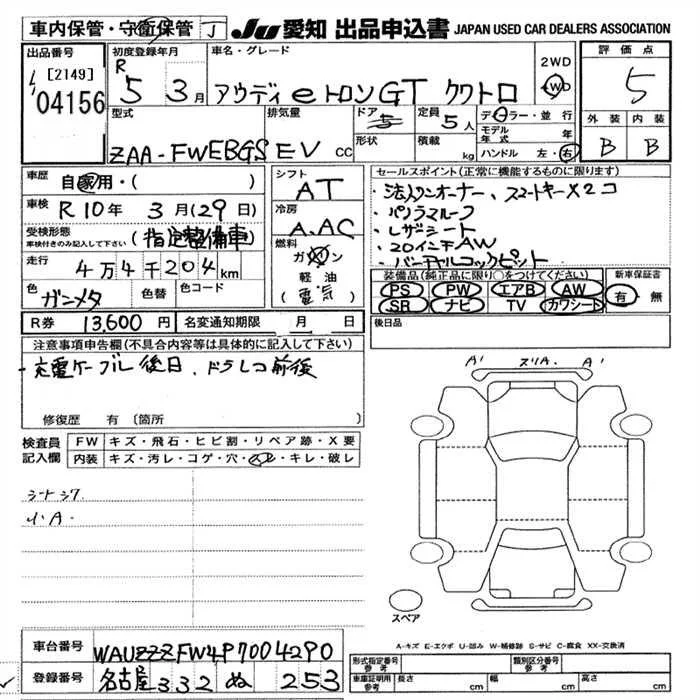 車内保管・守衛保管 J JU 愛知 出品申込書 JAPAN USED CAR DEALERS ASSOCIATION
出品番号
[2149]
04156
初度登録年月
R 5 3月
車名・グレード
アウディ eトロンGT クワトロ
2WD
4WD
評価点
5
外装 内装
B B
型式
ZAA-FWEBGS
排気量
EV cc
ドア 5
形状
定員 5人
積載 kg
ディーラー・並行
モデル年式 年
ハンドル 左・右
車歴 自家用・( )
車検 R10年 3月(29日)
受検形態
車検付きのみ記入して下さい
(指定整備車)
走行 4万4千204km
色 ガンメタ 色替 色コード
シフト
AT
冷房
A.AC
燃料
ガソリン
軽油
(電気)
セールスポイント(正常に機能するものに限ります)
・法人ワンオーナー、スマートキー×2コ
・パノラマルーフ
・レザーシート
・20インチAW
・バーチャルコックピット
装備品(純正品に限り○をつけてください)
PS PW エアB AW
SR ナビ TV カワシート
新車保証書
有・無
R券 13,600円 名変通知期限 月 日
後日品
注意事項申告欄(不具合内容等は具体的に記入して下さい)
・充電ケーブル後日、ドラレコ前後
修復歴 有 〔箇所 〕
検査員記入欄
FW キズ・飛石・ヒビ割・リペア跡・X要
内装 キズ・汚レ・コゲ・穴・スレ・キレ・破レ
シートシワ
小A.
A' スリA. A'
スペア
A-キズ E-エクボ U-凹み W-補修跡 S-サビ C-腐食 XX-交換済
車台番号 WAUZZZFW4P7004290
登録番号 名古屋 332 ぬ 253
形式指定番号 参考
類別区分番号 参考
車庫証明用 参考
長さ cm 幅 cm 高さ cm